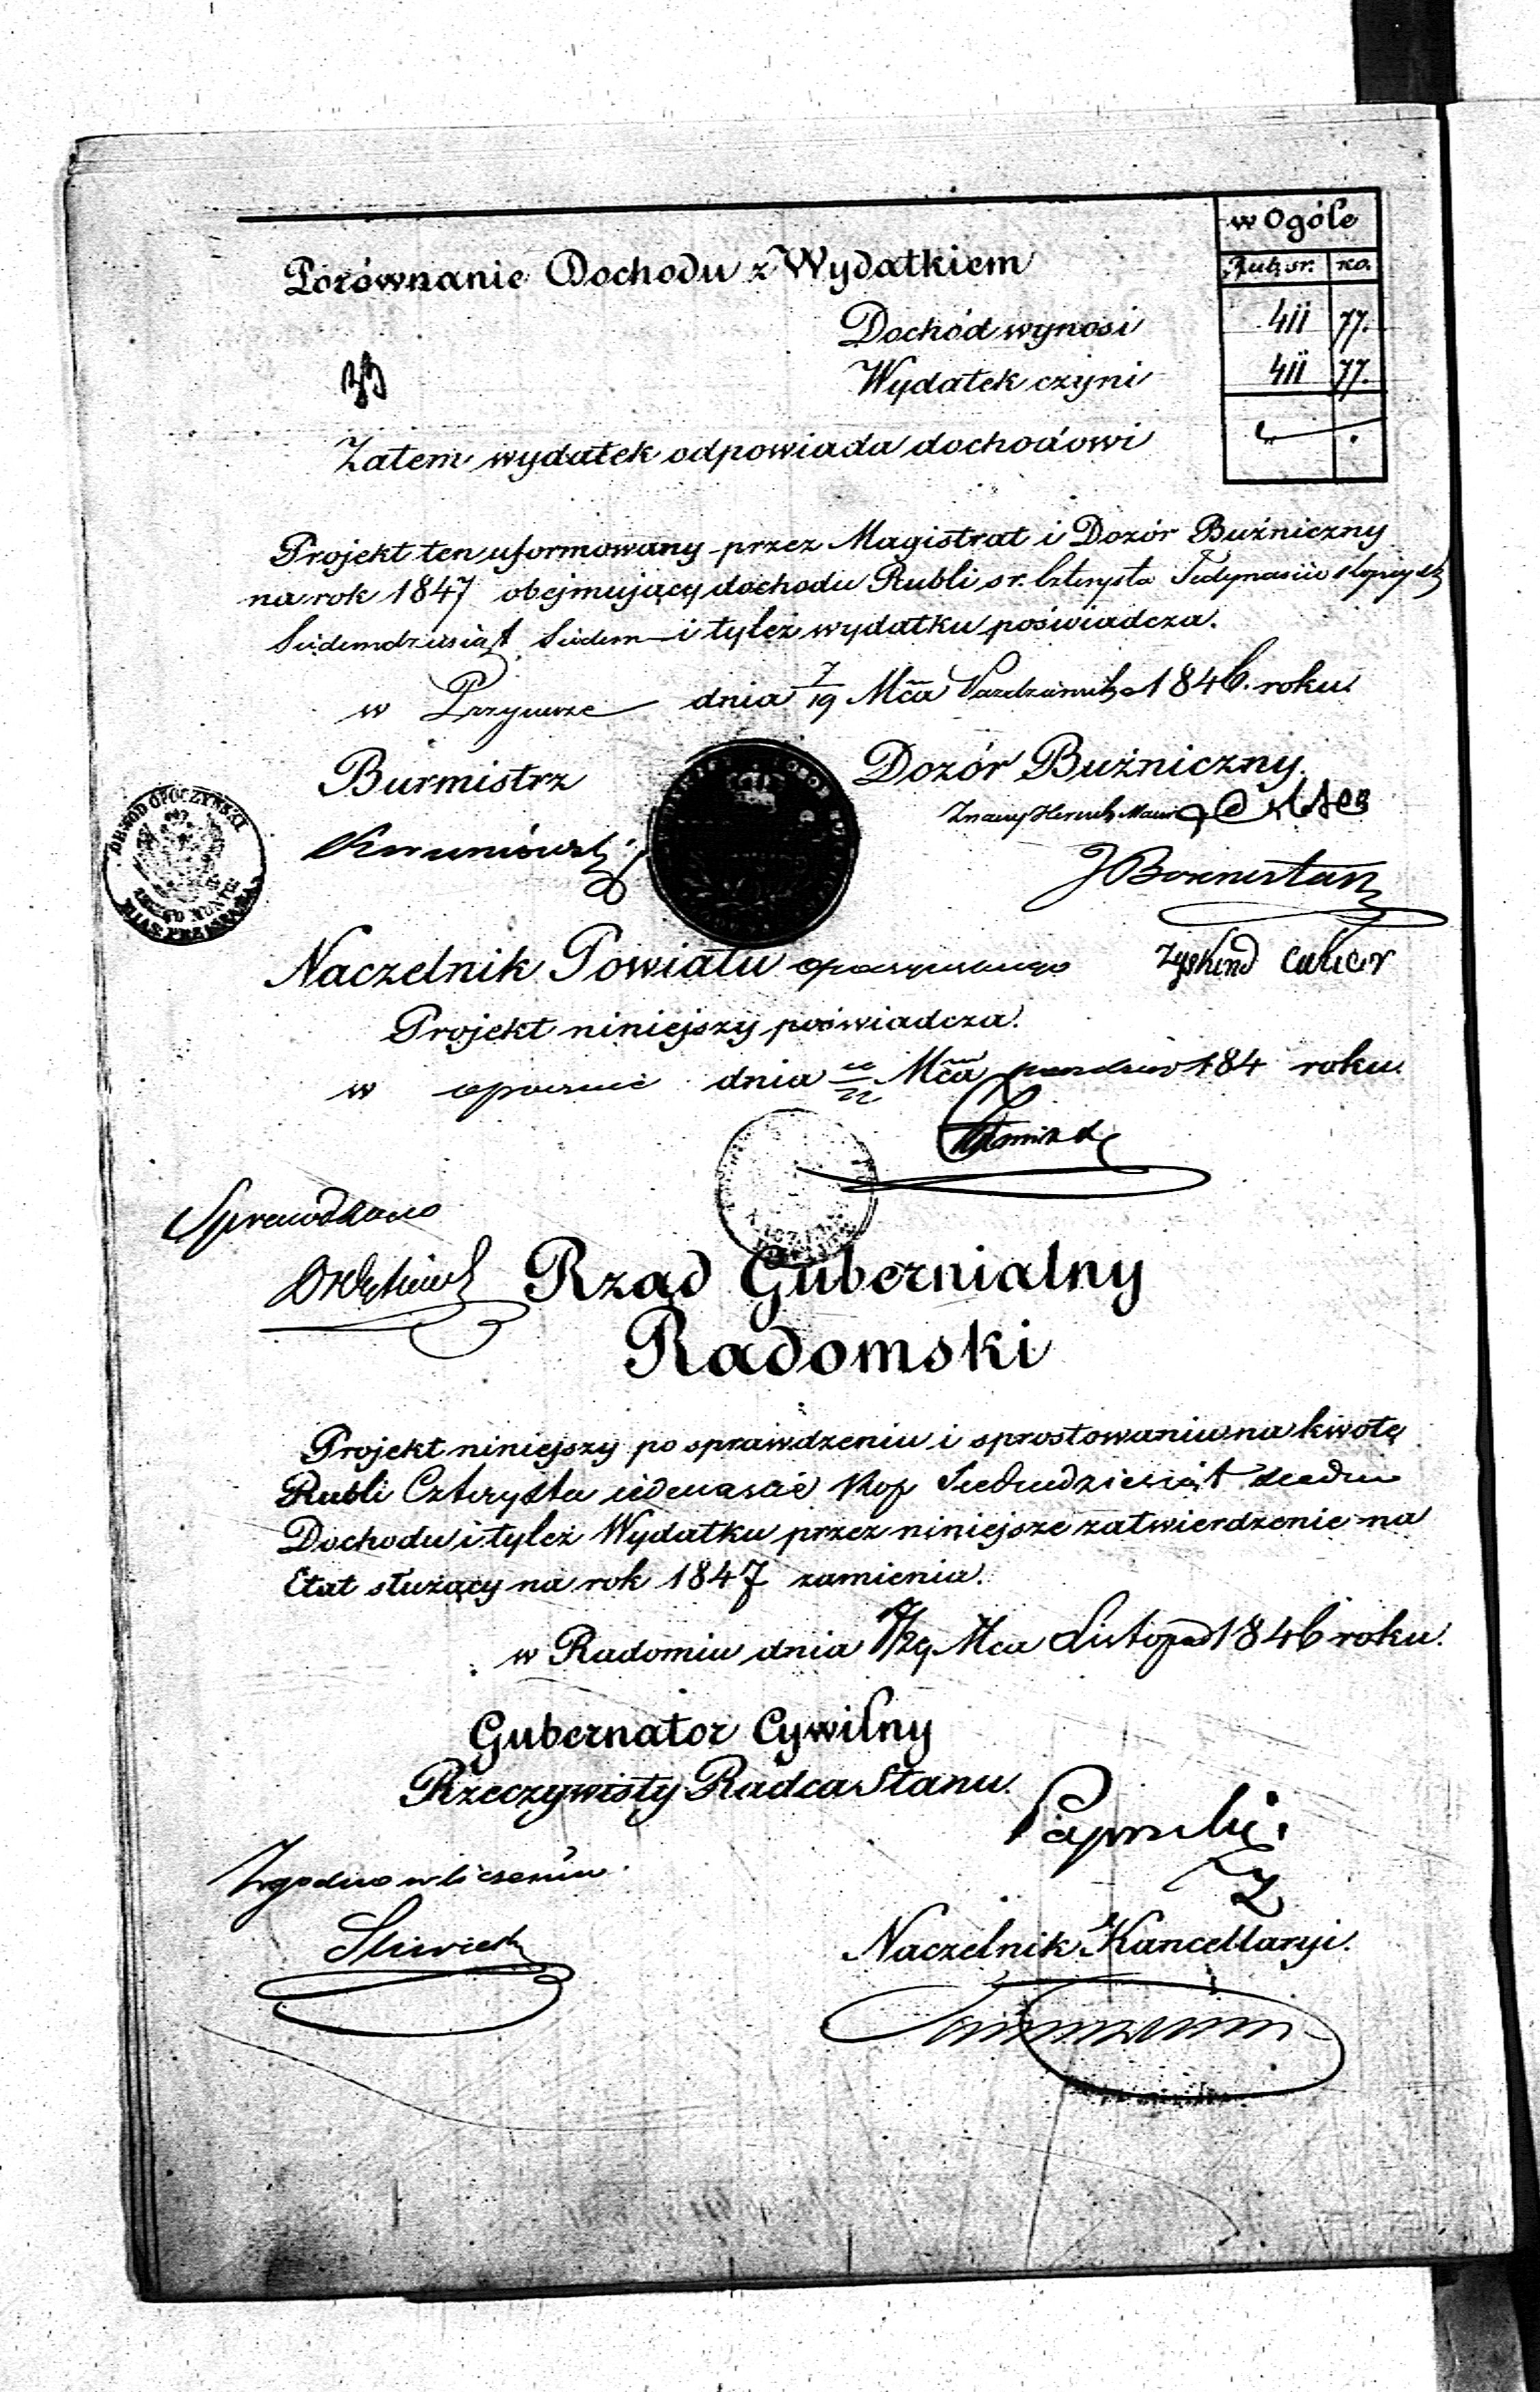 w Ogóle
Rub. sr. ko.
Porównanie Dochodu z Wydatkiem
Dochód wynosi 411 77.
Wydatek czyni 411 77.
Zatem wydatek odpowiada dochodowi
Projekt ten uformowany przez Magistrat i Dozór Bużniczny
na rok 1847 obejmujący dochodu Rubli sr. Czterysta Jedynaście Kopiejek
Siedemdziesiąt Siedem i tyleż wydatku poświadcza.
w dnia 7/19 Mca Października 1846. roku.
Burmistrz Dozór Bużniczny
OBWÓD OPOCZYŃSKI
Znaczy Herszk
J Bornsztan
Naczelnik Powiatu Opoczyńskiego Zyskind Cukier
Projekt niniejszy poświadcza.
w Opocznie dnia Mca 184 roku.
Sprawdzono
Rząd Gubernialny
Radomski
Projekt niniejszy po sprawdzeniu i sprostowaniu na kwotę
Rubli Czterysta iedenaście Kop Siedmdziesiąt siedm
Dochodu i tyleż Wydatku przez niniejsze zatwierdzenie na
Etat służący na rok 1847 zamienia.
w Radomiu dnia /29 Mca Listopad 1846 roku.
Gubernator Cywilny
Rzeczywisty Radca Stanu.
Zgodno w liczeniu.
Naczelnik Kancellaryi.